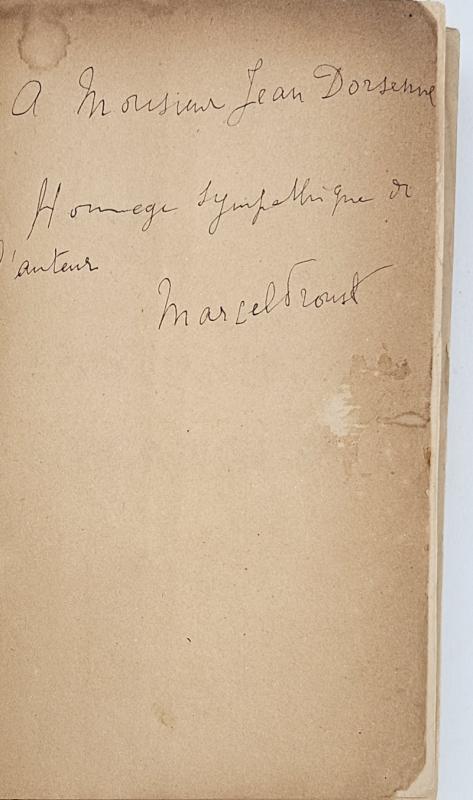 A Monsieur Jean Dorsenne
Hommage sympathique de
l'auteur
Marcel Proust